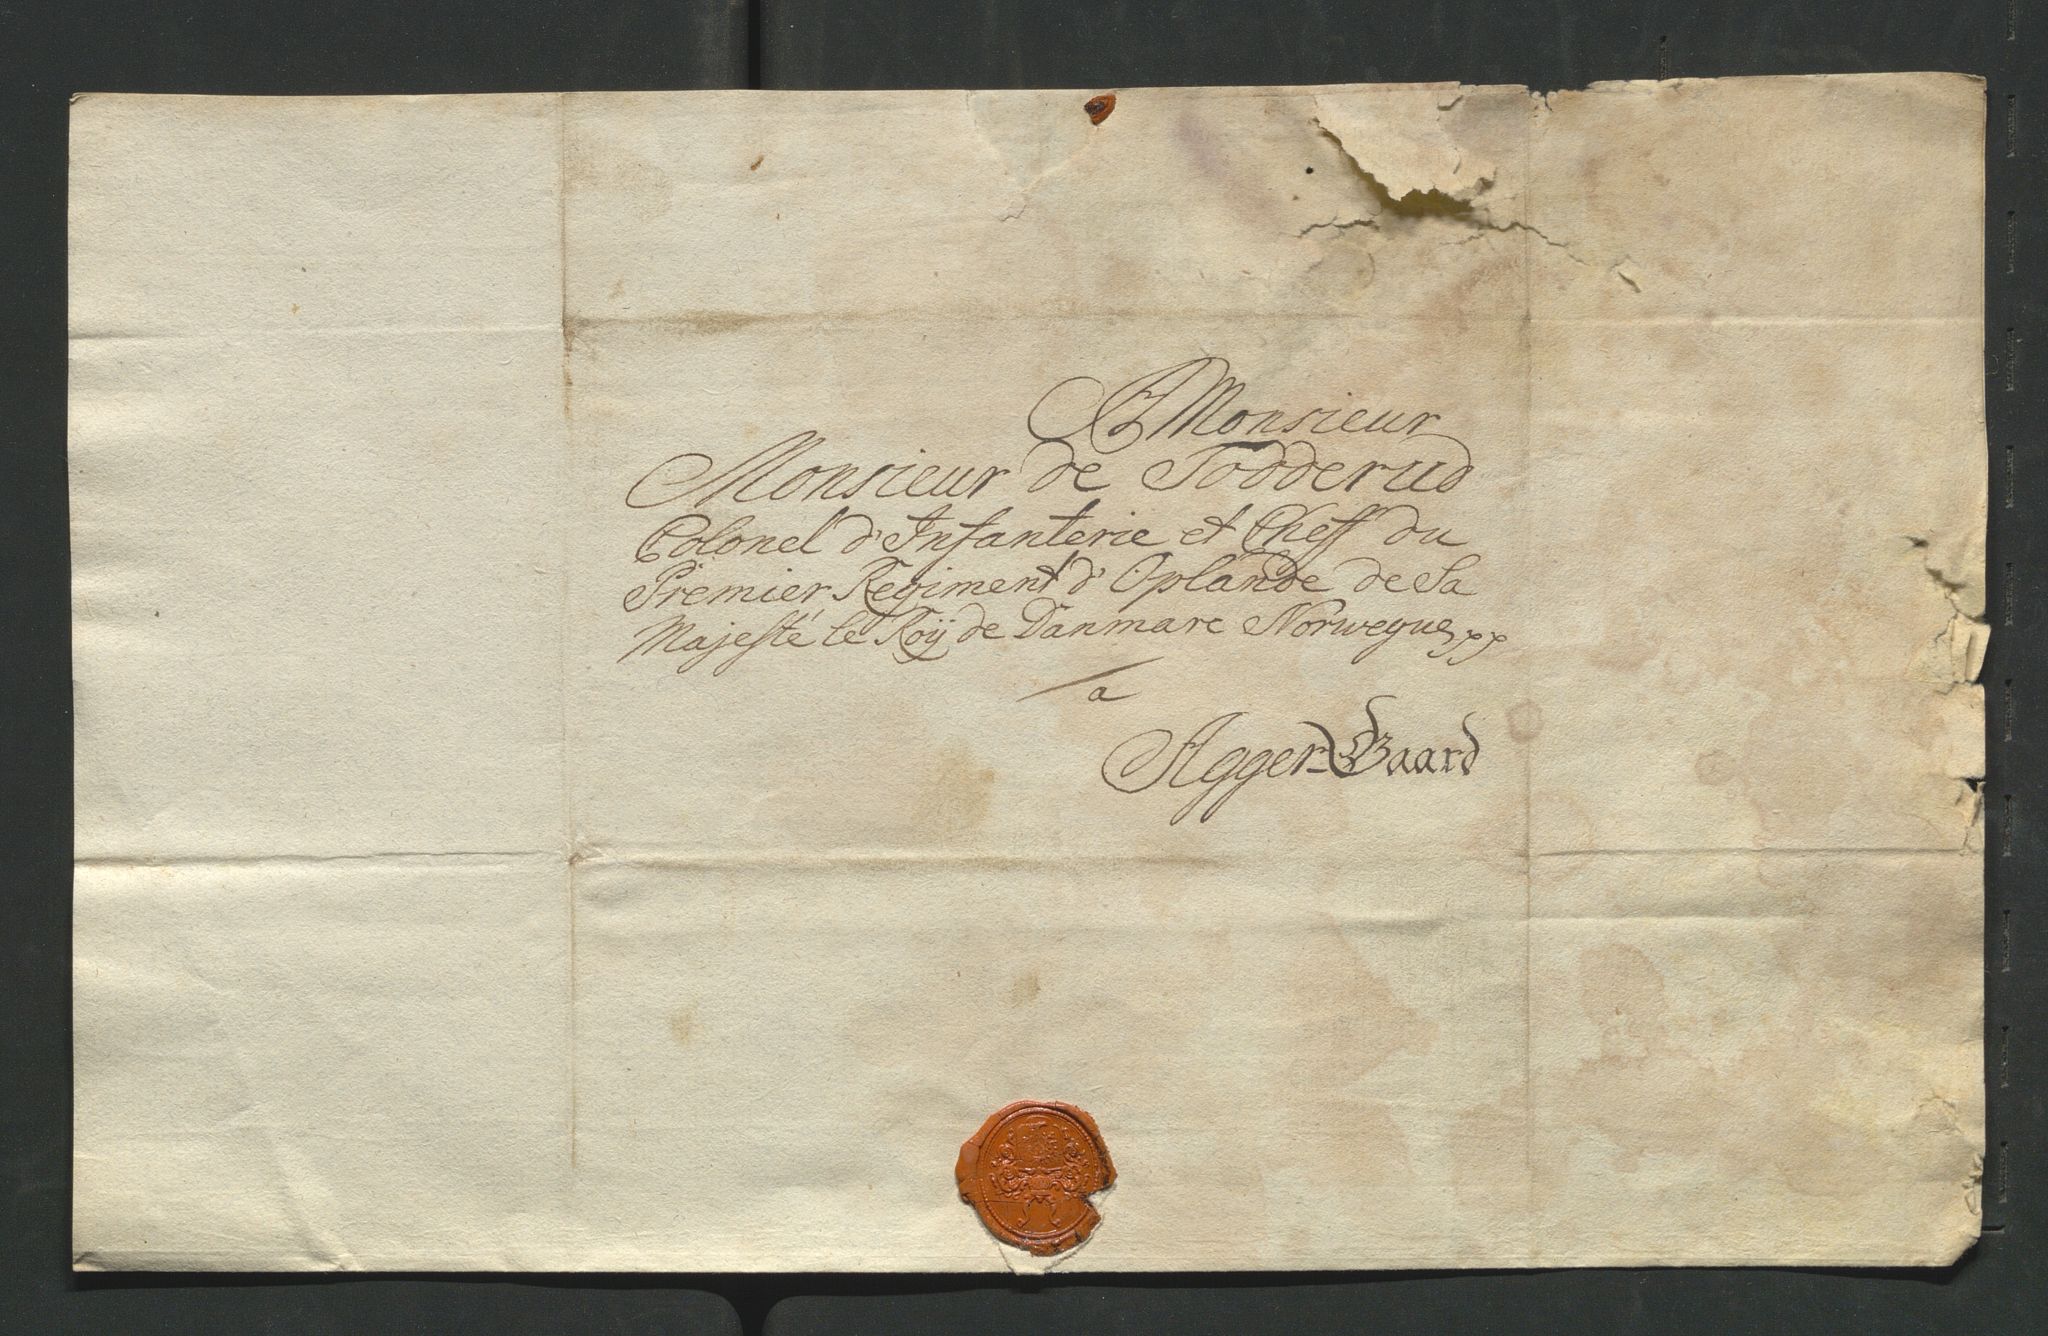 A Monsieur
Monsieur de Todderud
Colonel d'Infanterie et Cheff du
Premier Regiment d'Oplande de Sa
Majesté le Roÿ de Danmarc Norwegue pp
a
Agger-Gaard